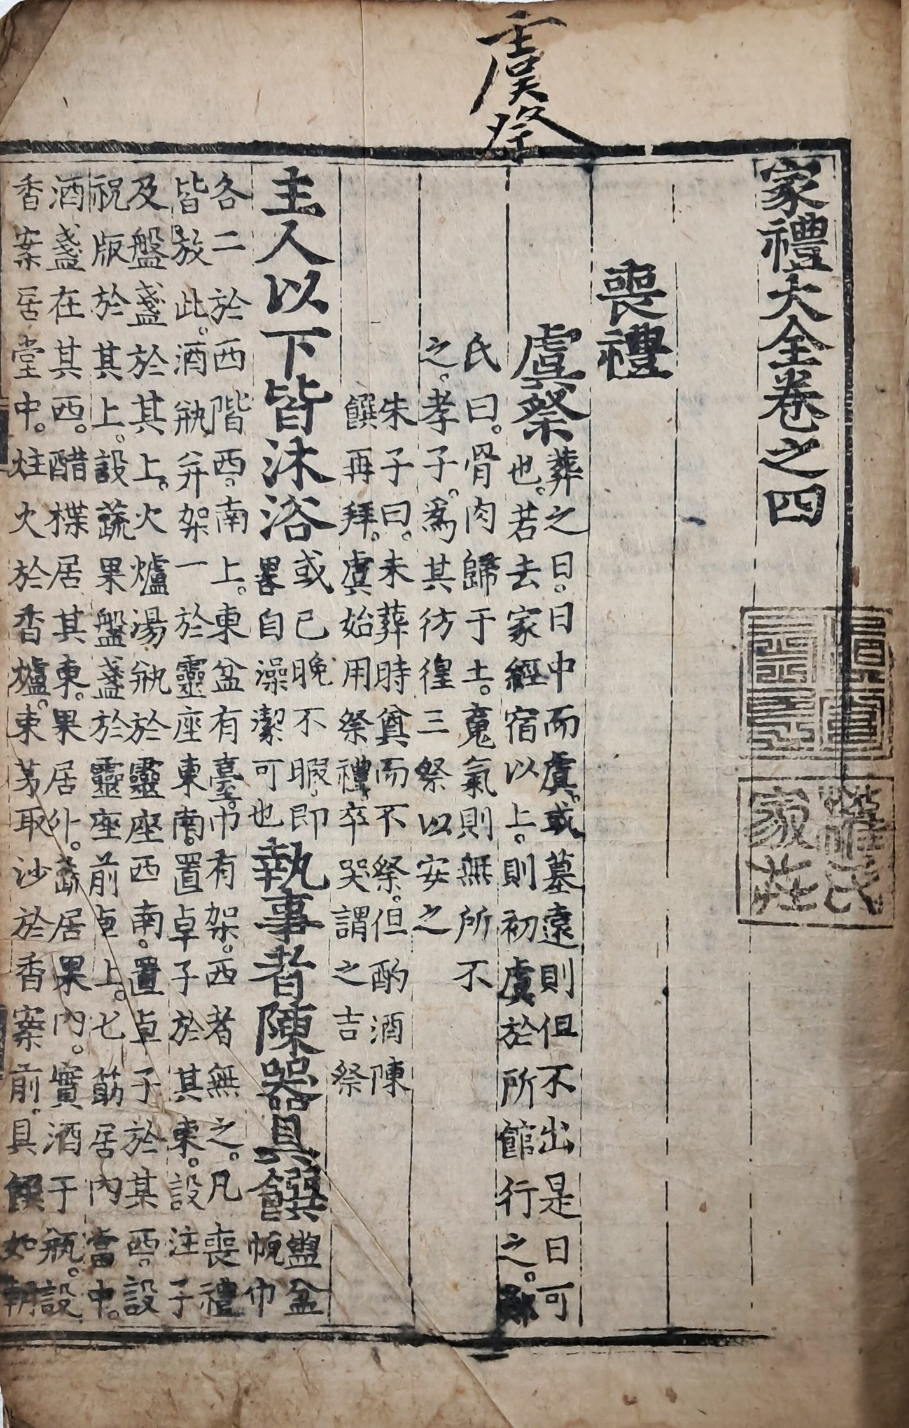 虞祭
家禮大全卷之四
喪禮
虞祭
葬之日。日中而虞。或墓遠則但不出是日可
也。若去家經宿以上。則初虞於所館行之。鄭
氏曰。骨肉歸于土。䰟氣則無所不
之。孝子。爲其彷徨三祭以安之
朱子曰。未葬時奠而不祭。但酌酒陳
饌再拜。虞始用祭禮。卒哭謂之吉祭
主人以下皆沐浴
或已晚不暇。即
畧自澡潔可也
執事者陳器具饌
盥盆
帨巾
各二於西階西。南上。東盆有臺。巾有架。西者無之。凡喪禮
皆放此。酒瓶并架一於靈座東南。置卓子於其東。設注子
及盤盞於其上。火爐湯瓶於靈座西南。置卓子於其西。設
祝版於其上。設蔬果盤盞於靈座前卓上。匕筯居內當中。
酒盞在其西。醋楪居其東。果居外。蔬居果內。實酒于瓶。設
香案居堂中。炷火於香爐。束茅取沙於香案前。具饌如朝